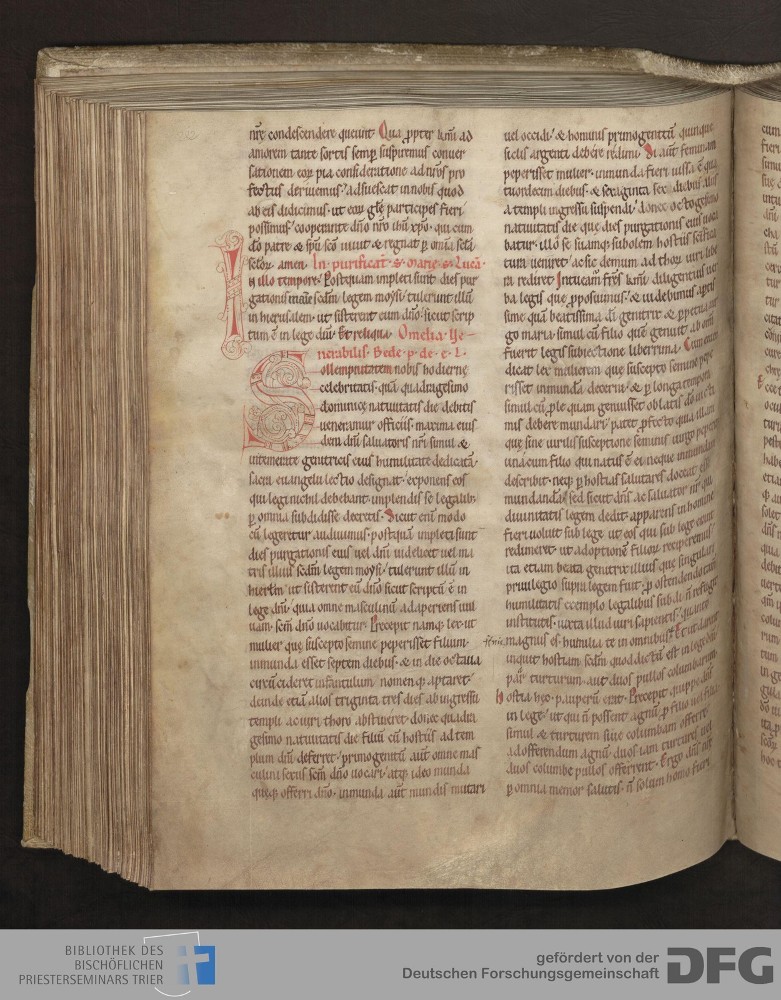 nr̄e condescendere queunt. Qua ꝓpter km̄i ad
amorem tante sortis semꝑ suspiremus conuer
sationem eoꝝ pia consideratione ad nr̄os pro
fectus deriuemus. adsuescat in nobis quod
ab eis didicimus. ut eoꝝ gl̄e participes fieri
possimus. cooperante dn̄o nr̄o ihū xp̄o. qui cum
dō patre & sp̄u sc̄o uiuit & regnat ꝑ om̄ia sc̄la
sc̄loꝝ. amen. In purificat̄. s. marie. s. Lucā.
In illo tempore. Postquam impleti sunt dies pur
gationis marie sc̄dm̄ legem moysi. tulerunt illū
in hierusalem. ut sisterent eum dn̄o. sicut scrip
tum ē in lege dn̄i. Et reliqua. Omelia Ve
nerabilis. Bede. p. de. e. l.
Sollempnitatem nobis hodierne
celebritatis. quā quadragesimo
dominice natiuitatis die debitis
ueneramur officiis. maxima eius
dem dn̄i saluatoris nr̄i. simul &
intemerate genitricis eius humilitate dedicatā.
sacra euangelii lectio designat. exponens eos
qui legi nichil debebant. implendis se legalib;
ꝑ omnia subdidisse decretis. Sicut eni modo
cū legeretur audiuimus. postquā impleti sunt
dies purgationis eius uel dn̄i uidelicet uel ma
tris illius sc̄dm̄ legem moysi. tulerunt illū in
hierlm̄ ut sisterent eū dn̄o sicut scriptū ē in
lege dn̄i. quia omne masculinū adaperiens uul
uam. sc̄m̄ dn̄o uocabitur. Precepit namqꝫ lex. ut
mulier que suscepto semine peperisset filium.
inmunda esset septem diebus. & in die octaua
circūcideret infantulum nomenqꝫ aptaret.
deinde etiā alios triginta tres dies ab ingressu
templi ac uiri thoro abstineret. donec quadra
gesimo natiuitatis die filiū cū hostiis ad tem
plum dn̄i deferret. primogenitū aut̄ omne mas
culini sexus sc̄m̄ dn̄o uocari. atqꝫ ideo munda
queqꝫ offerri dn̄o. inmunda aut̄ mundis mutari
uel occidi. & hominis primogenitū quinque
siclis argenti debere redimi. Si aut̄ feminam
peperisset mulier. inmunda fieri iussa ē qua
tuordecim diebus. & sexaginta sex diebus suis
a templi ingressu suspendi. donec octogesimo
natiuitatis die que dies purgationis eius uoca
batur. illo se suamqꝫ subolem hostiis sc̄ifica
tura ueniret. ac sic demum ad thorū uiri libe
ra rediret. Intueam̄ fr̄es km̄i diligentius uer
ba legis que ꝓposuimus. & uidebimus aptis
sime quia beatissima dī genitrix & ꝑpetua uir
go maria. simul cū filio quē genuit ab omni
fuerit legis subiectione liberrima. Cum enim
dicat lex mulierem que suscepto semine pepe
risset inmundā decerni. & ꝑ longa tempora
simul cū ꝓle quam genuisset oblatis dn̄o uicti
mis debere mundari. patet ꝓfecto quia illam
que sine uirilis susceptione seminis uirgo peperit
una cum filio qui natus ē ei neque inmundam
describit. neqꝫ ꝑ hostias salutaris doceat esse
mundandā. sed sicut dn̄s ac saluator nr̄ qui
diuinitatis legem dedit. apparens in homine
fieri uoluit sub lege. ut eos qui sub lege erant
redimeret. ut adoptionē filioꝝ reciperemus.
ita etiam beata genitrix illius que singulari
priuilegio supra legem fuit. ꝓ ostendendo tam̄
humilitatis exemplo legalibus subdi n̄ refugit
institutis. iuxta illud uiri sapientis. quanto
magnus es. humilia te in omnibus. Et ut darent
inquit hostiam. sc̄dm̄ quod dictū est in lege dn̄i.
par turturum. aut duos pullos columbarum.
Hostia hec pauperū erat. Precepit quippe dn̄s
in lege. ut qui n̄ possent agnū ꝓ filio uel filia
simul & turturem siue columbam offerre.
ad offerendum agnū. duos iam turtures uel
duos columbe pullos offerrent. Ergo dn̄s nr̄
ꝑ omnia memor salutis. n̄ solum homo fieri
BIBLIOTHEK DES
BISCHÖFLICHEN
PRIESTERSEMINARS TRIER
gefördert von der
Deutschen Forschungsgemeinschaft
DFG